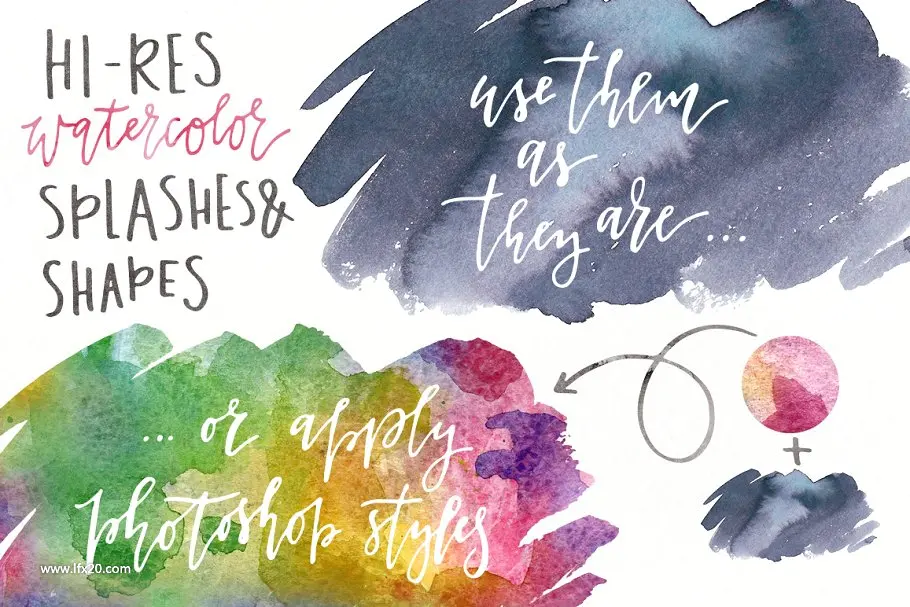 HI-RES
watercolor
SPLASHES&
SHAPES
use them
as
they are ...
... or apply
photoshop styles
+
www.lfx20.com